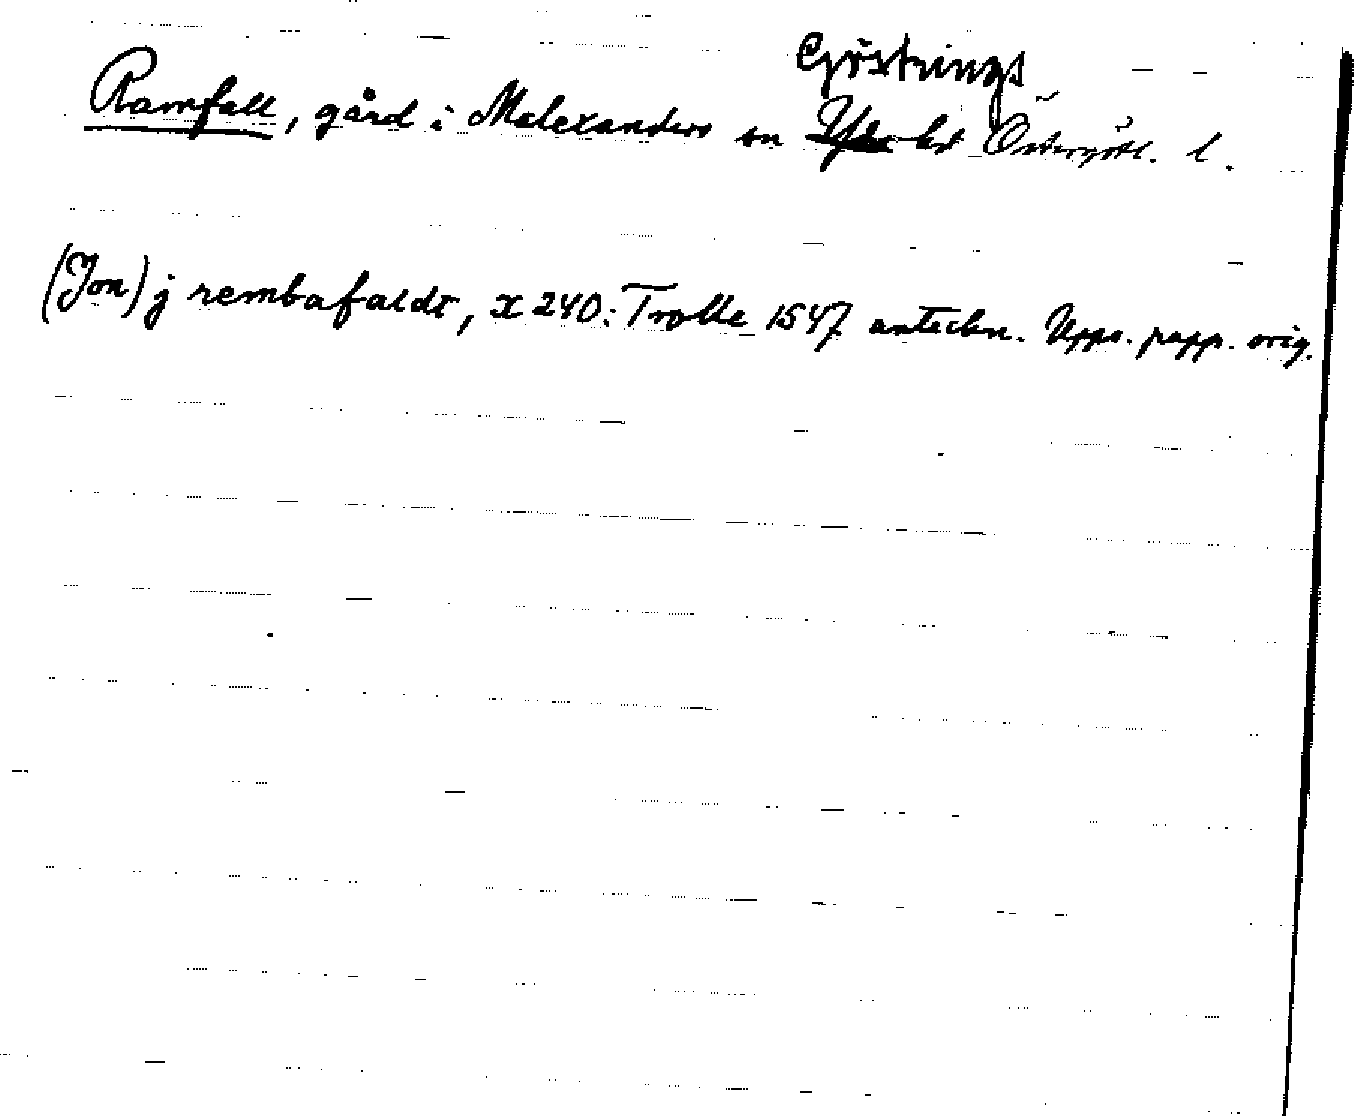 Göstrings
Ramfall, gård i Malexanders sn Ydre hd Östergötl. l.
(Jon) j rembafaldt, x 240: Trolle 1547 anteckn. Upps. papp. orig.